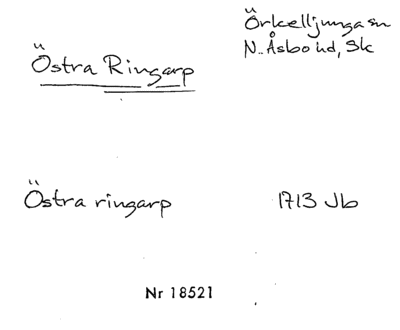 Östra Ringarp
Örkelljunga sn
N. Åsbo hd, Sk
Östra ringarp 1713 Jb
Nr 18521